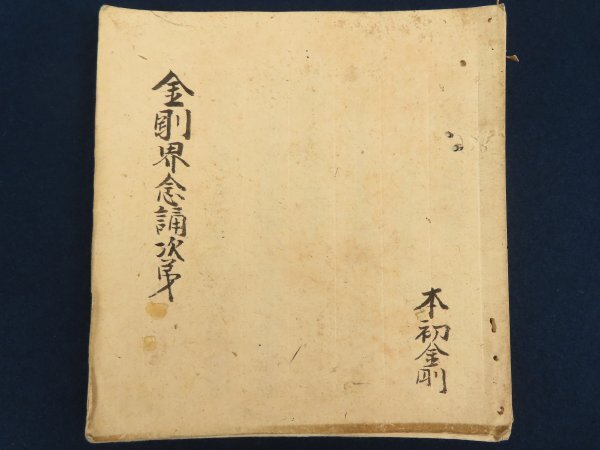 金剛界念誦次第
本初金剛